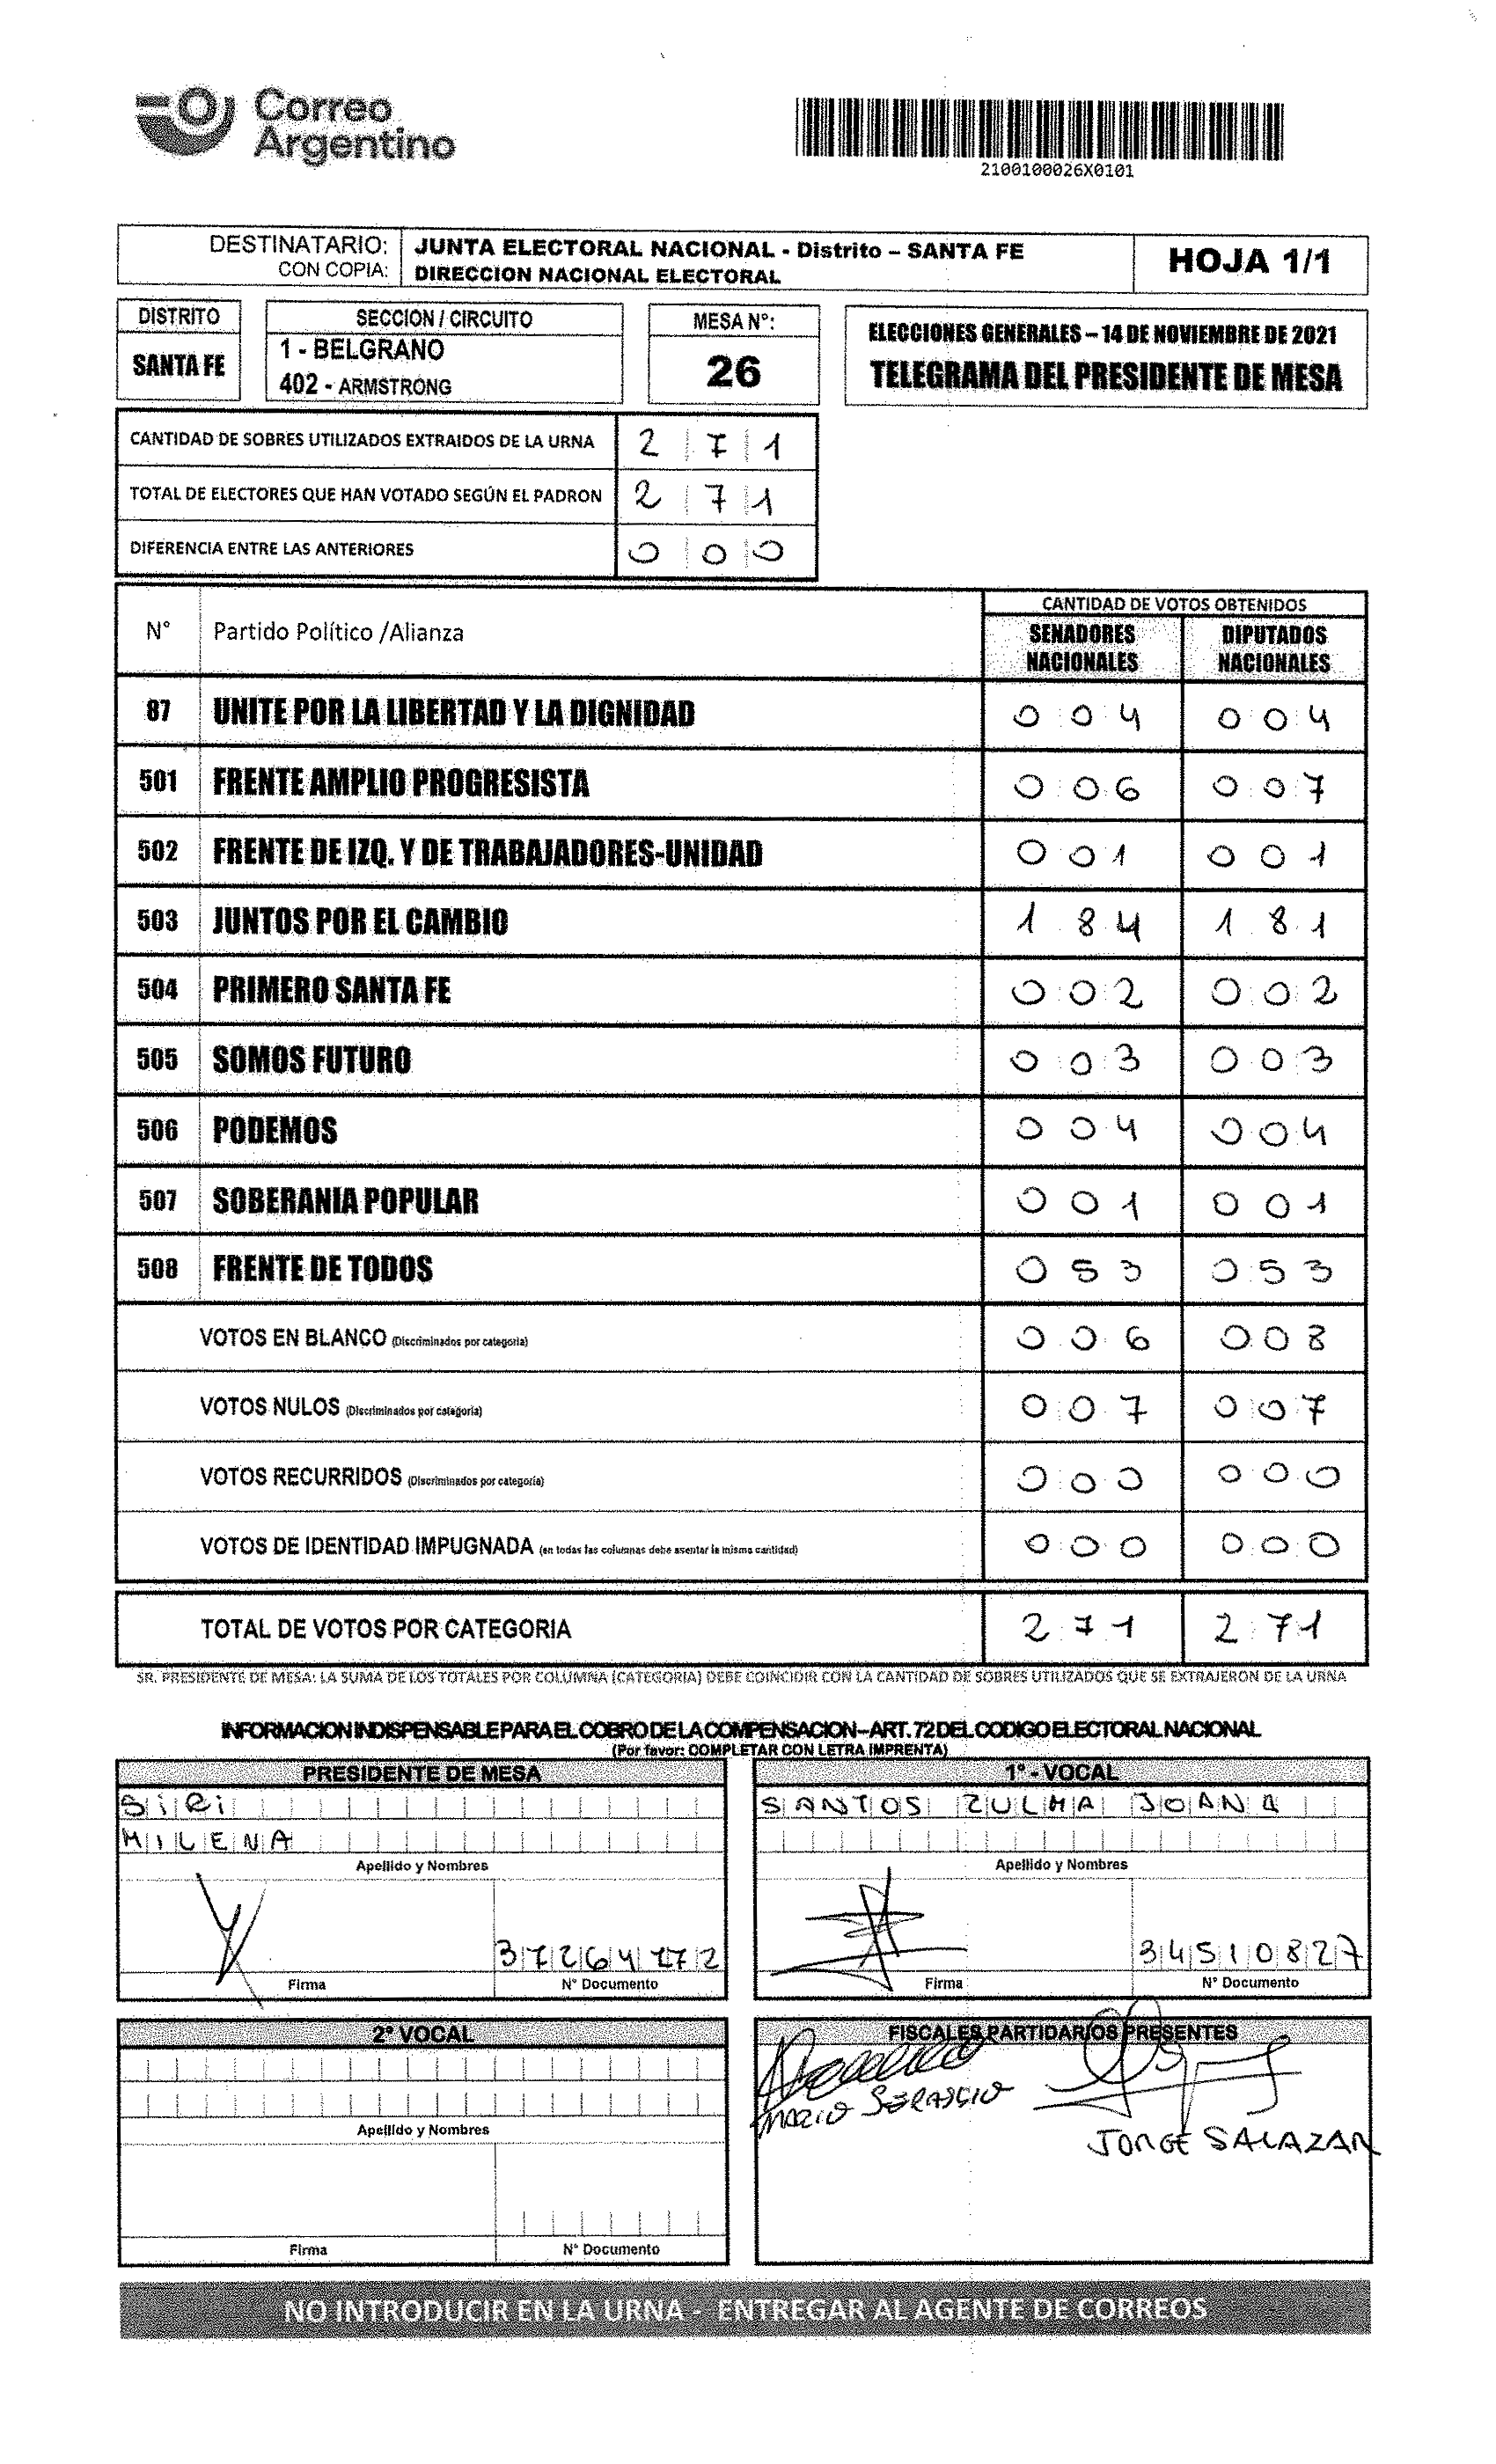 Correo
Argentino
2100100026X0101
DESTINATARIO: JUNTA ELECTORAL NACIONAL - Distrito – SANTA FE
CON COPIA: DIRECCION NACIONAL ELECTORAL
HOJA 1/1
DISTRITO
SANTA FE
SECCION / CIRCUITO
1 - BELGRANO
402 - ARMSTRONG
MESA N°:
26
ELECCIONES GENERALES – 14 DE NOVIEMBRE DE 2021
TELEGRAMA DEL PRESIDENTE DE MESA
CANTIDAD DE SOBRES UTILIZADOS EXTRAIDOS DE LA URNA 2 7 1
TOTAL DE ELECTORES QUE HAN VOTADO SEGÚN EL PADRON 2 7 1
DIFERENCIA ENTRE LAS ANTERIORES 0 0 0
CANTIDAD DE VOTOS OBTENIDOS
N° Partido Político /Alianza SENADORES NACIONALES DIPUTADOS NACIONALES
87 UNITE POR LA LIBERTAD Y LA DIGNIDAD 0 0 4 0 0 4
501 FRENTE AMPLIO PROGRESISTA 0 0 6 0 0 7
502 FRENTE DE IZQ. Y DE TRABAJADORES-UNIDAD 0 0 1 0 0 1
503 JUNTOS POR EL CAMBIO 1 8 4 1 8 1
504 PRIMERO SANTA FE 0 0 2 0 0 2
505 SOMOS FUTURO 0 0 3 0 0 3
506 PODEMOS 0 0 4 0 0 4
507 SOBERANIA POPULAR 0 0 1 0 0 1
508 FRENTE DE TODOS 0 5 3 0 5 3
VOTOS EN BLANCO (Discriminados por categoria) 0 0 6 0 0 8
VOTOS NULOS (Discriminados por categoria) 0 0 7 0 0 7
VOTOS RECURRIDOS (Discriminados por categoria) 0 0 0 0 0 0
VOTOS DE IDENTIDAD IMPUGNADA (en todas las columnas debe asentar la misma cantidad) 0 0 0 0 0 0
TOTAL DE VOTOS POR CATEGORIA 2 7 1 2 7 1
SR. PRESIDENTE DE MESA: LA SUMA DE LOS TOTALES POR COLUMNA (CATEGORIA) DEBE COINCIDIR CON LA CANTIDAD DE SOBRES UTILIZADOS QUE SE EXTRAJERON DE LA URNA
INFORMACION INDISPENSABLE PARA EL COBRO DE LA COMPENSACION – ART. 72 DEL CODIGO ELECTORAL NACIONAL
(Por favor: COMPLETAR CON LETRA IMPRENTA)
PRESIDENTE DE MESA
SiRi
MILENA
Apellido y Nombres
Firma
N° Documento
1° - VOCAL
SANTOS ZULMA JOANA
Apellido y Nombres
34510827
Firma
N° Documento
2° VOCAL
Apellido y Nombres
Firma
N° Documento
FISCALES PARTIDARIOS PRESENTES
MARIO
JORGE SALAZAR
NO INTRODUCIR EN LA URNA - ENTREGAR AL AGENTE DE CORREOS